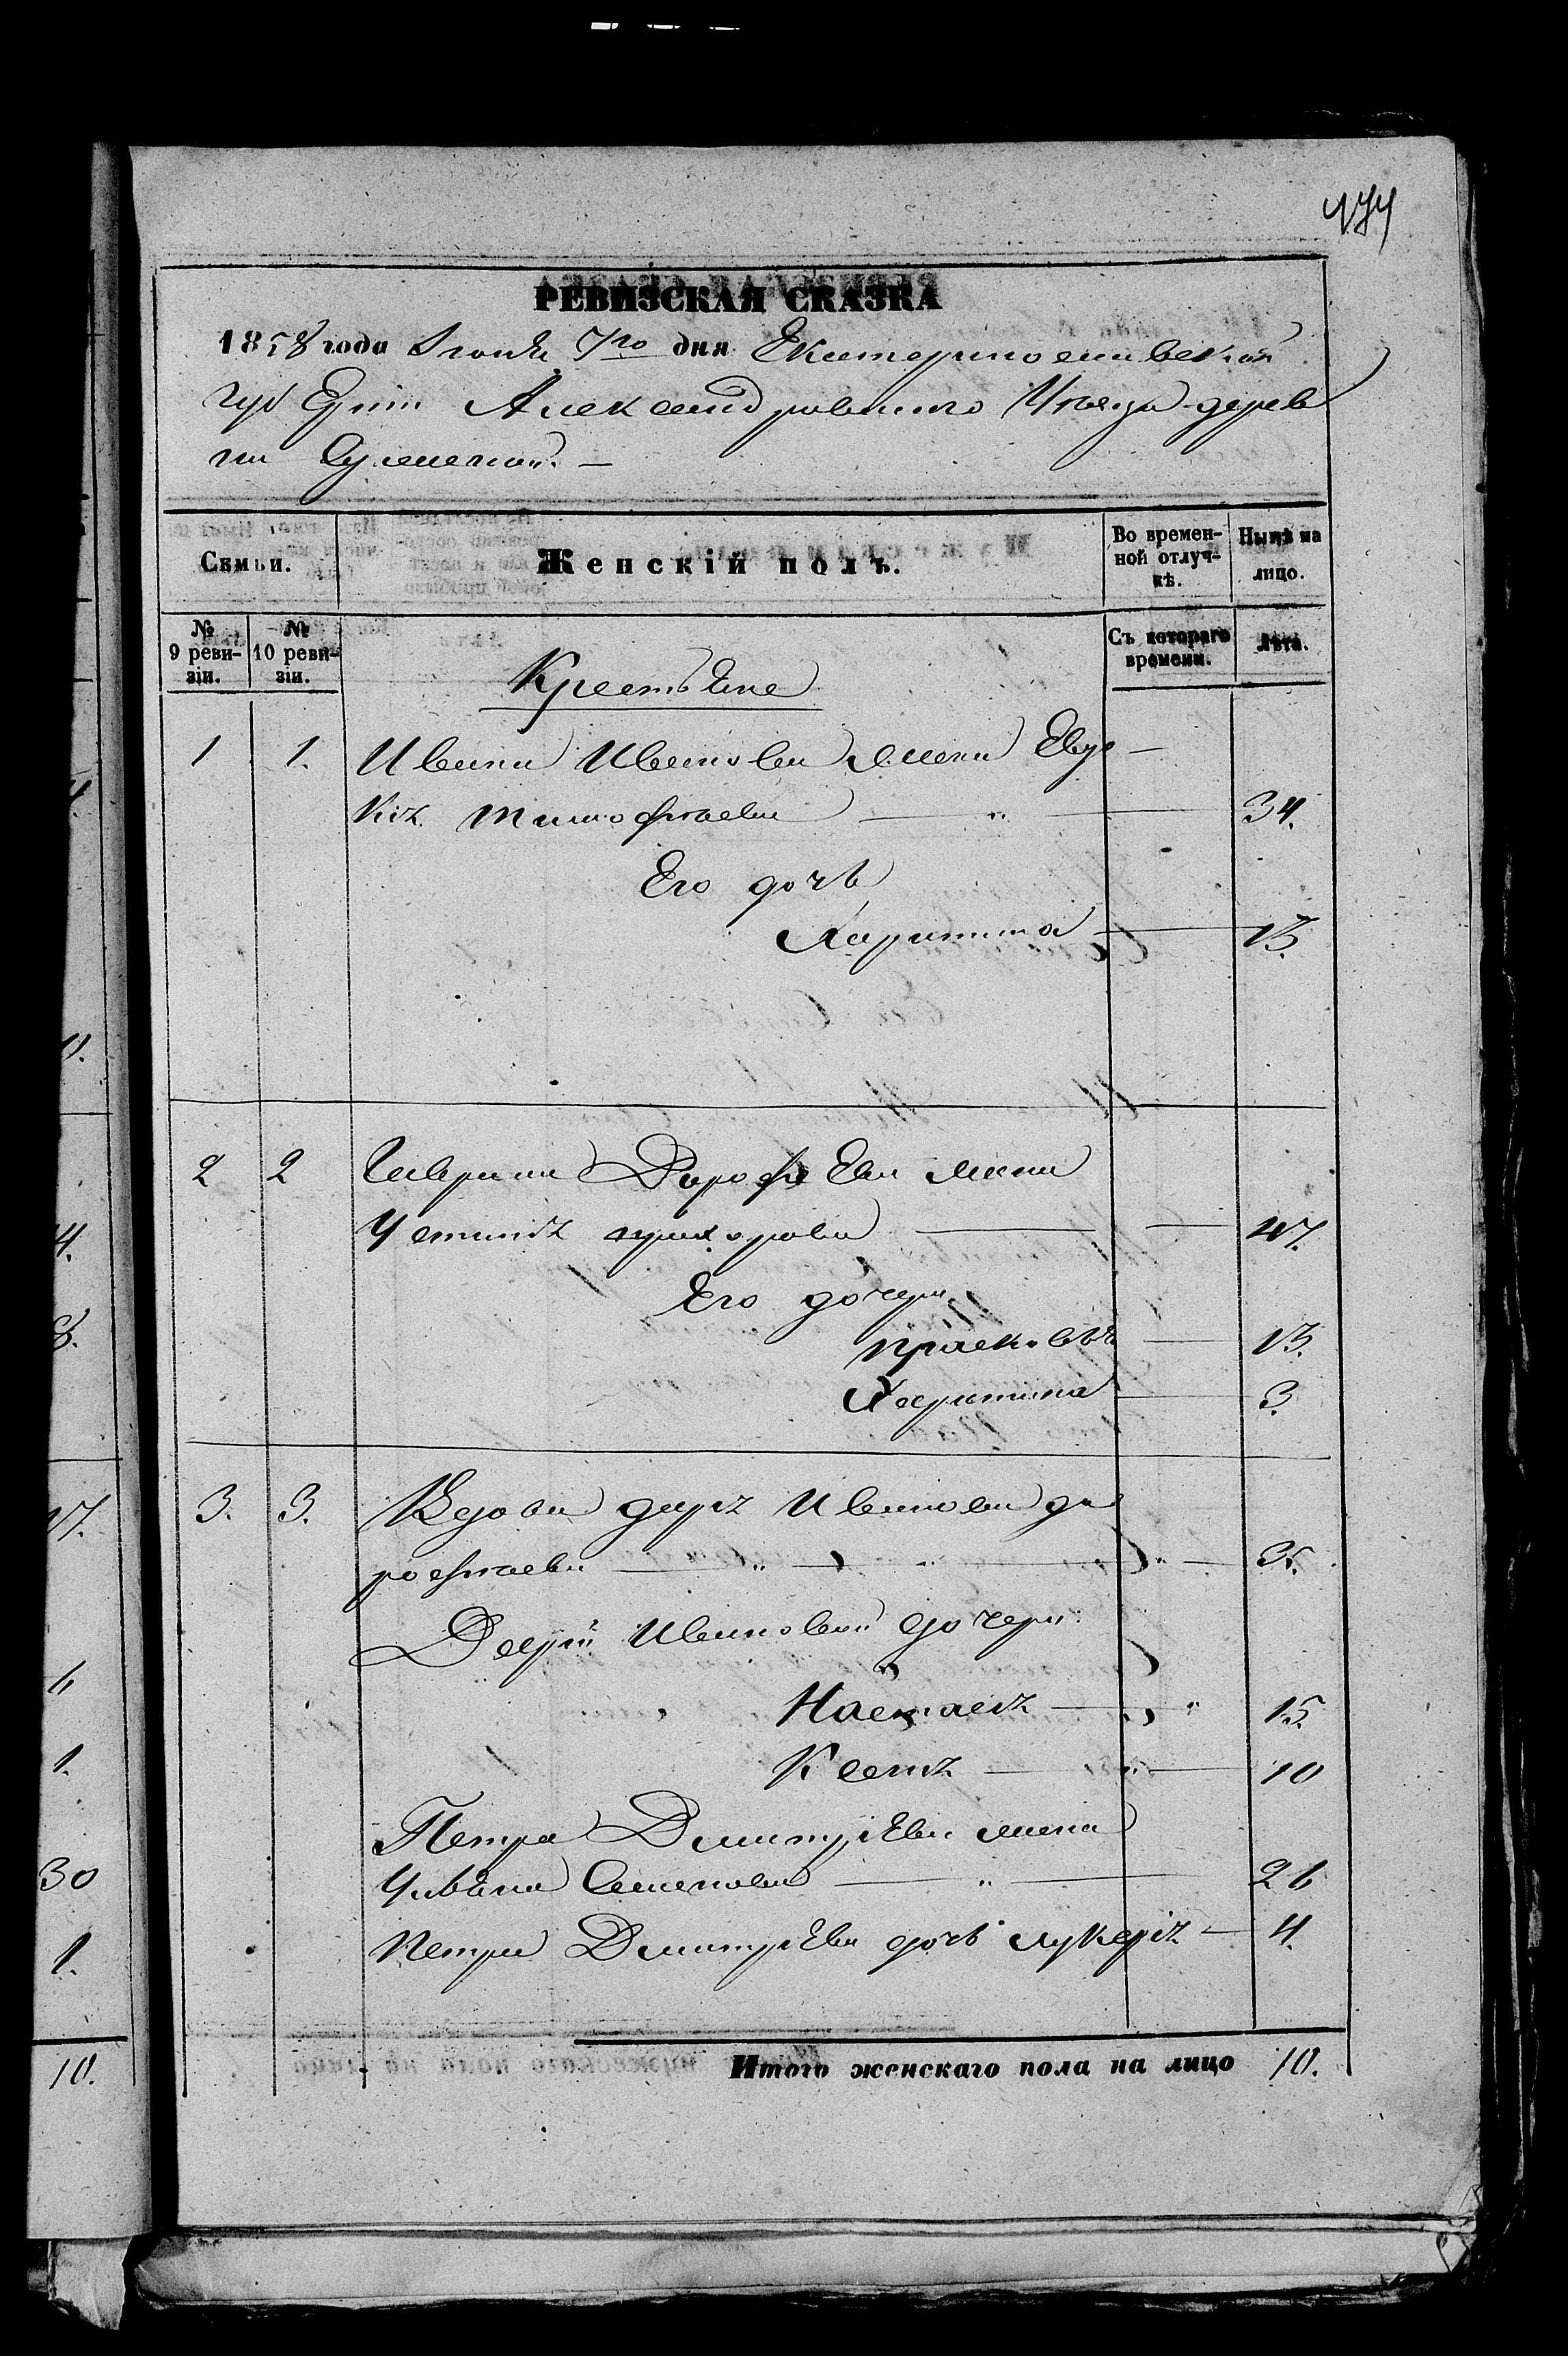 РЕВИЗСКАЯ СКАЗКА
1858 года Июня 7го дня Екатеринославской
губерніи Александровского Уѣзда дерев
ни
Семьи.
Женскій полъ.
Во времен-
ной отлуч-
кѣ.
Нынѣ на
лицо.
№
9 реви-
зіи.
№
10 реви-
зіи.
Съ котораго
времени.
Лѣта.
Крестьяне
1 1. Ивана Иванова жена Евдо
кія Тимофѣева — " — 34.
Его дочь
Харитина — 13.
2 2 Гаврила Дорофѣева жена
Устинія Прохорова — 47.
Его дочери
Прасковья — 13.
Харитина — 3.
3. 3. Вдова Дарья Иванова До
рофѣева — " — 35.
Дарьи Ивановой дочери
Настасья — " 15.
Ксенія — " — 10
Петра Дмитріева жена
Ульяна Семенова — " — 26
Петра Дмитріева дочь Лукерія — 4.
Итого женскаго пола на лицо 10.
11.
4.
8.
17.
6
1.
30
1.
10.